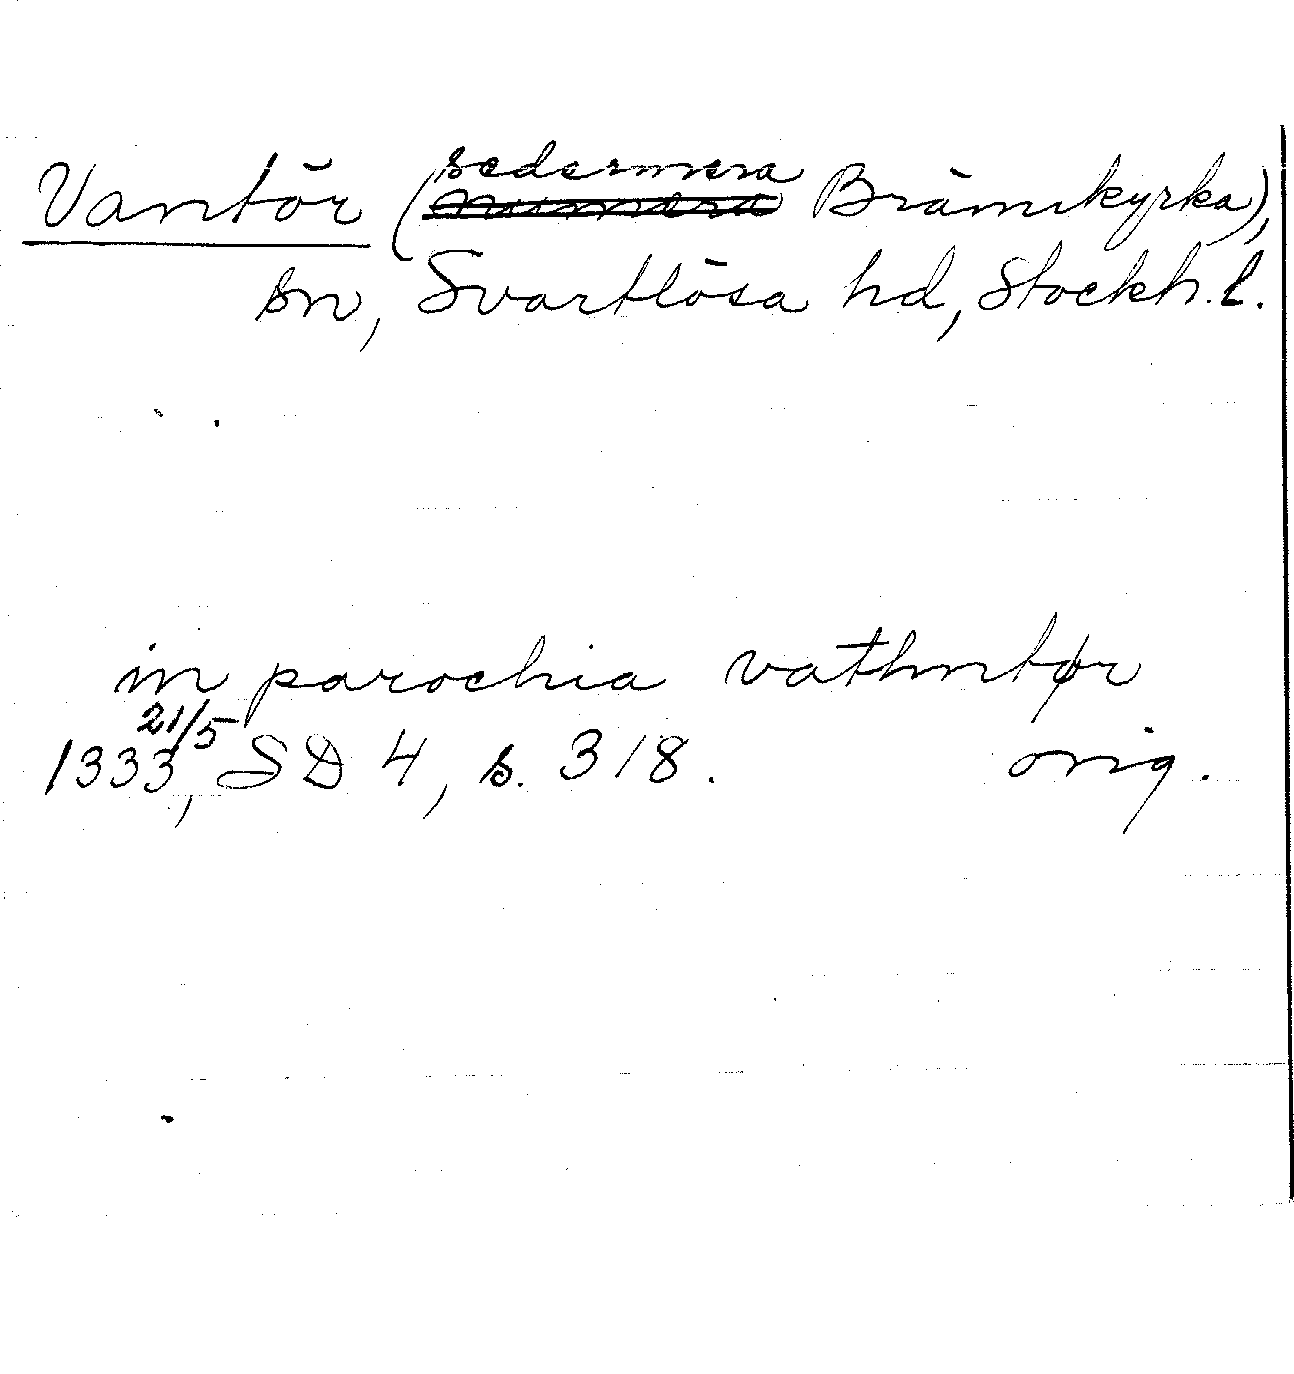 Vantör (sedermera Brännkyrka),
sn, Svartlösa hd, Stockh. l.
in parochia vathntør
1333 21/5, SD 4, s. 318. orig.